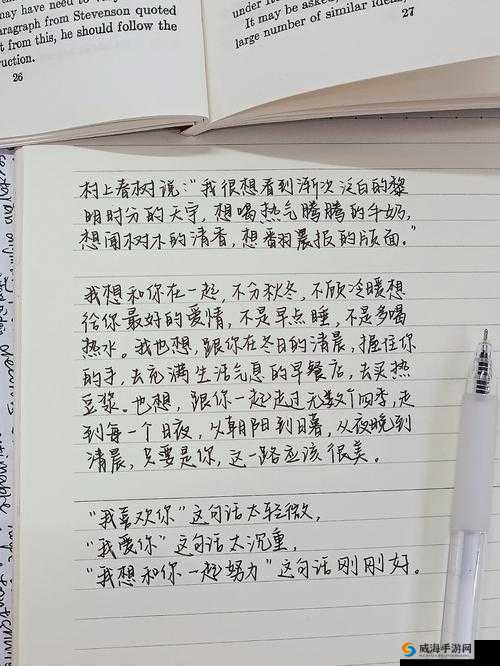 may have need to
paragraph from Stevenson quoted
t from this, he should follow the
ruction.
26
under
It may be asked,
large number of similar ideas,
27
村上春树说:“我很想看到渐次泛白的黎
明时分的天宇,想喝热气腾腾的牛奶,
想闻树木的清香,想翻晨报的版面。”
我想和你在一起,不分秋冬,不顾冷暖想
给你最好的爱情,不是早点睡,不是多喝
热水。我也想,跟你在冬日的清晨,握住你
的手,去充满生活气息的早餐店,去买热
豆浆。也想,跟你一起走过无数个四季,走
到每一个日夜,从朝阳到日暮,从夜晚到
清晨,只要是你,这一路应该很美。
“我喜欢你”这句话太轻微,
“我爱你”这句话太沉重,
“我想和你一起努力”这句话刚刚好。
威海手游网